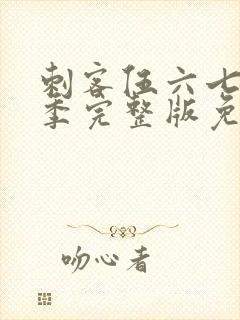 刺客伍六七
季完整版免
吻心者